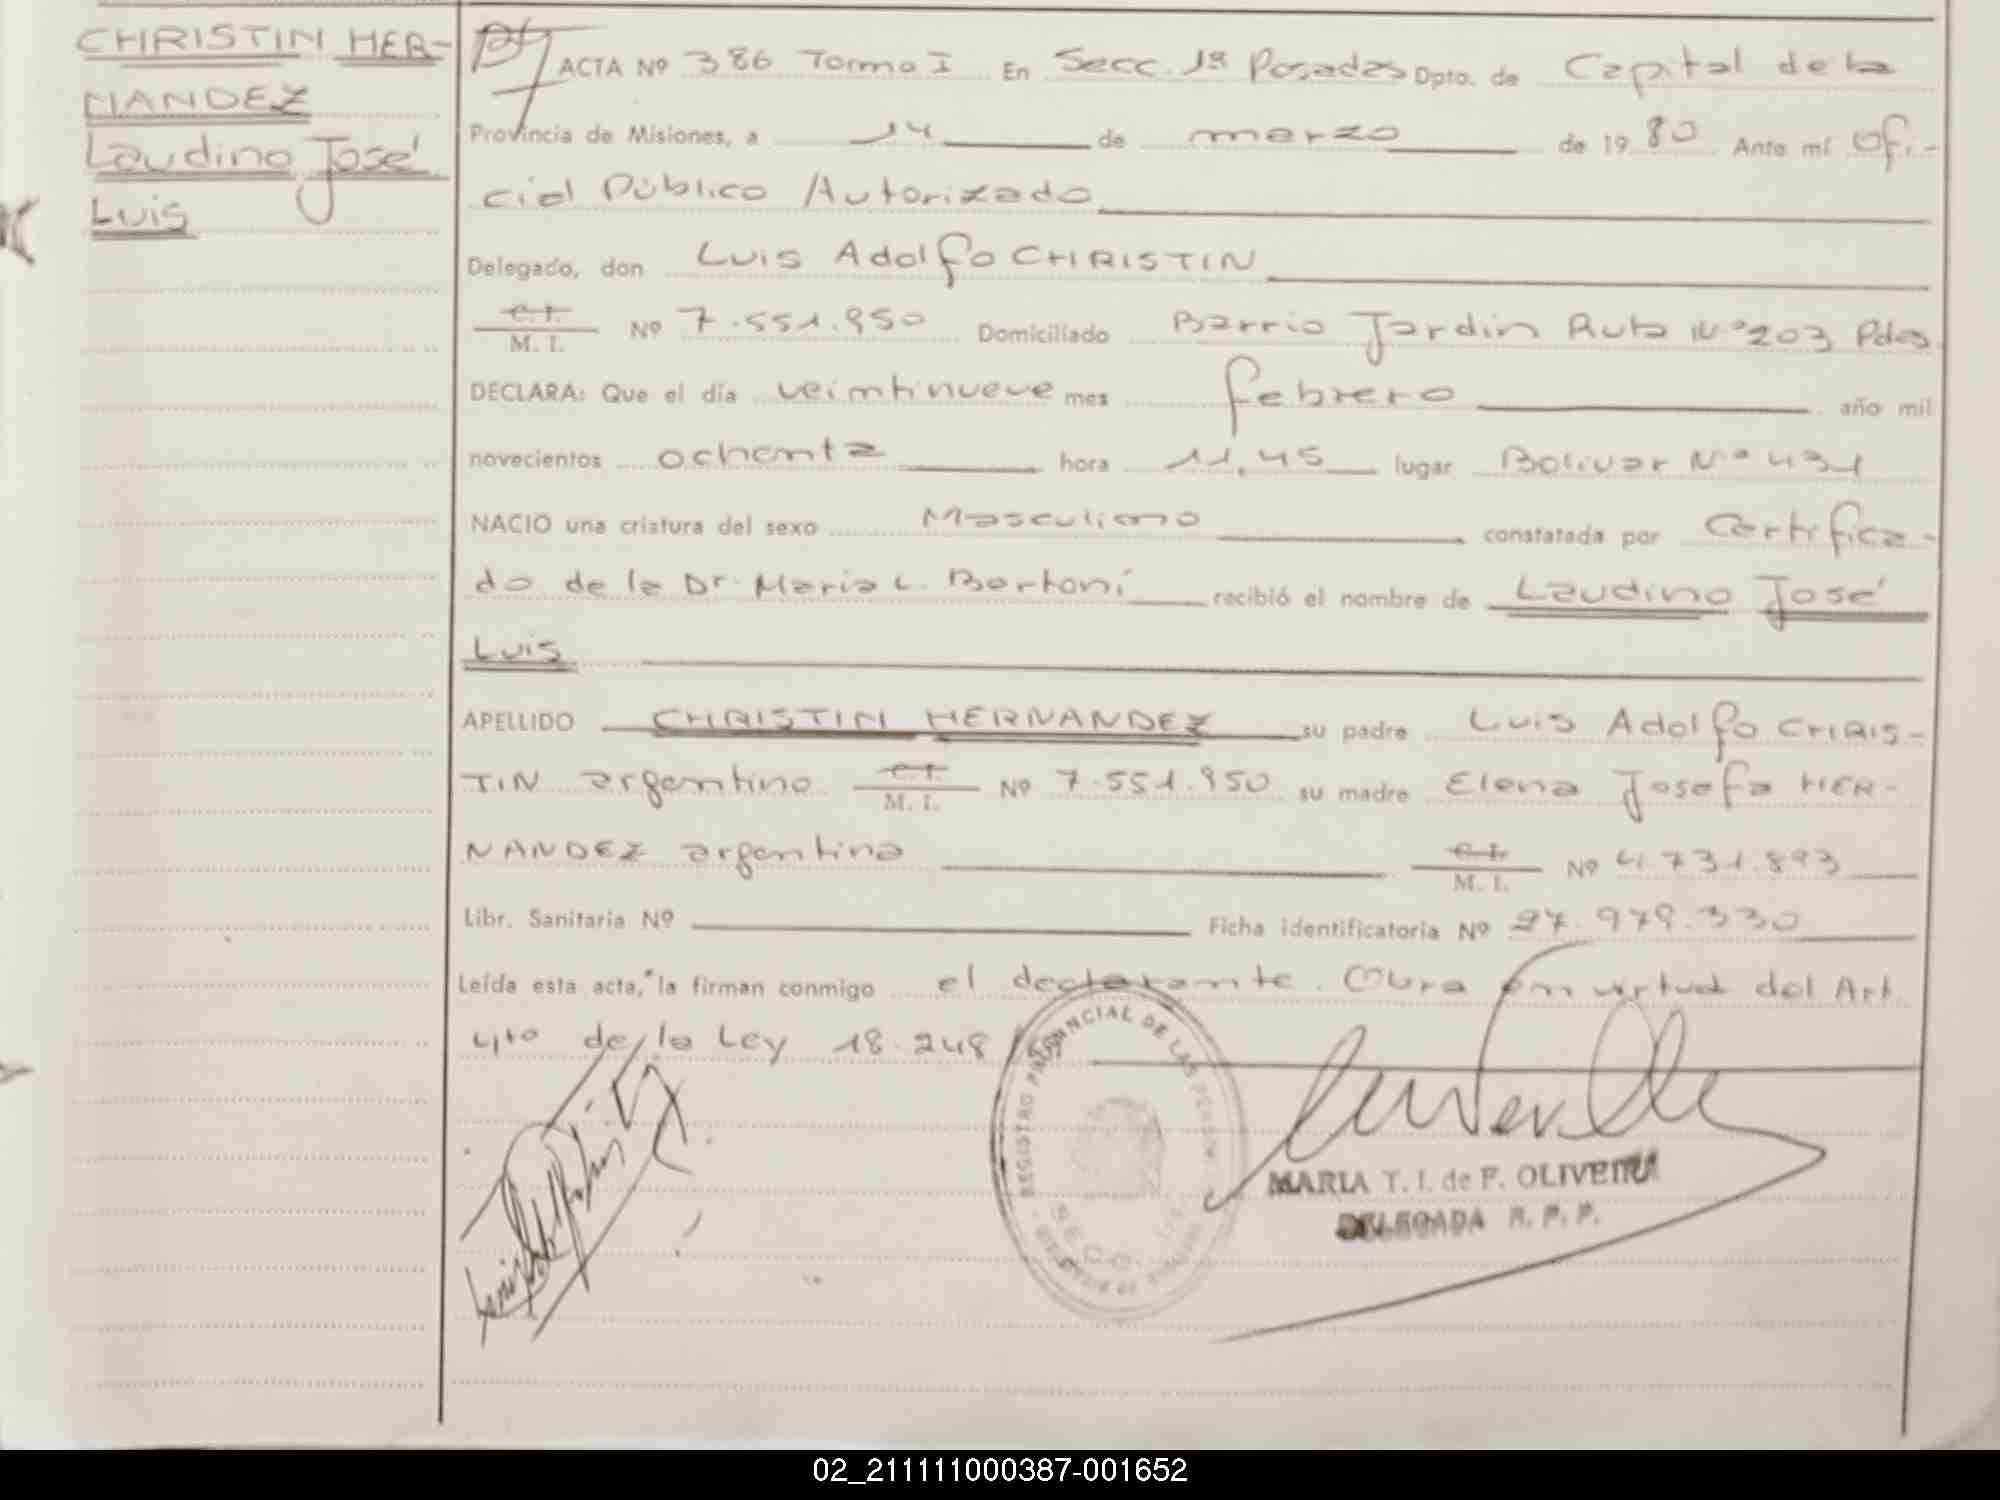 CHRISTIN HER-
NANDEZ
Laudino José
Luis
ACTA Nº 386 Tomo I En Secc. 1ª Posadas Dpto. de Capital de la
Provincia de Misiones, a 14 de marzo de 1980 Ante mí Ofi-
cial Público Autorizado
Delegado, don Luis Adolfo CHRISTIN
C. I. M. I. Nº 7.551.950 Domiciliado Barrio Jardin Ruta Nº 203 Pdas
DECLARA: Que el día veintinueve mes febrero año mil
novecientos ochenta hora 11,45 lugar Bolivar Nº 431
NACIO una criatura del sexo Masculino constatada por Certifica-
do de la Dr. Maria L. Bertoni recibió el nombre de Laudino José
Luis
APELLIDO CHRISTIN HERNANDEZ su padre Luis Adolfo CHRIS-
TIN argentino C. I. M. I. Nº 7.551.950 su madre Elena Josefa HER-
NANDEZ argentina C. I. M. I. Nº 4.731.893
Libr. Sanitaria Nº Ficha identificatoria Nº 27.979.330
Leída esta acta, la firman conmigo el declarante. Obra en virtud del Art.
4to de la Ley 18.248/69
REGISTRO PROVINCIAL DE LAS PERSONAS
SECC. 1ª
MARIA T. I. de F. OLIVEIRA
DELEGADA R. P. P.
02_211111000387-001652